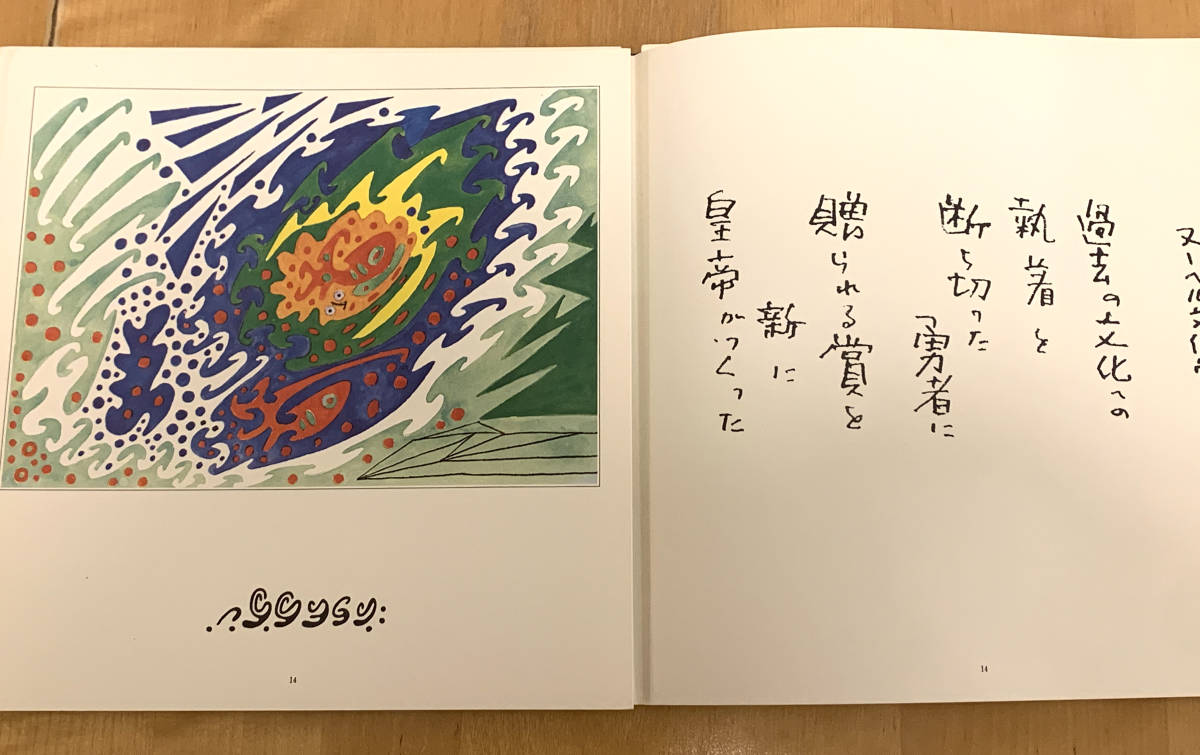 過去の文化への
執着を
断ち切った
勇者に
贈られる賞を
新に
皇帝がつくった
14
14